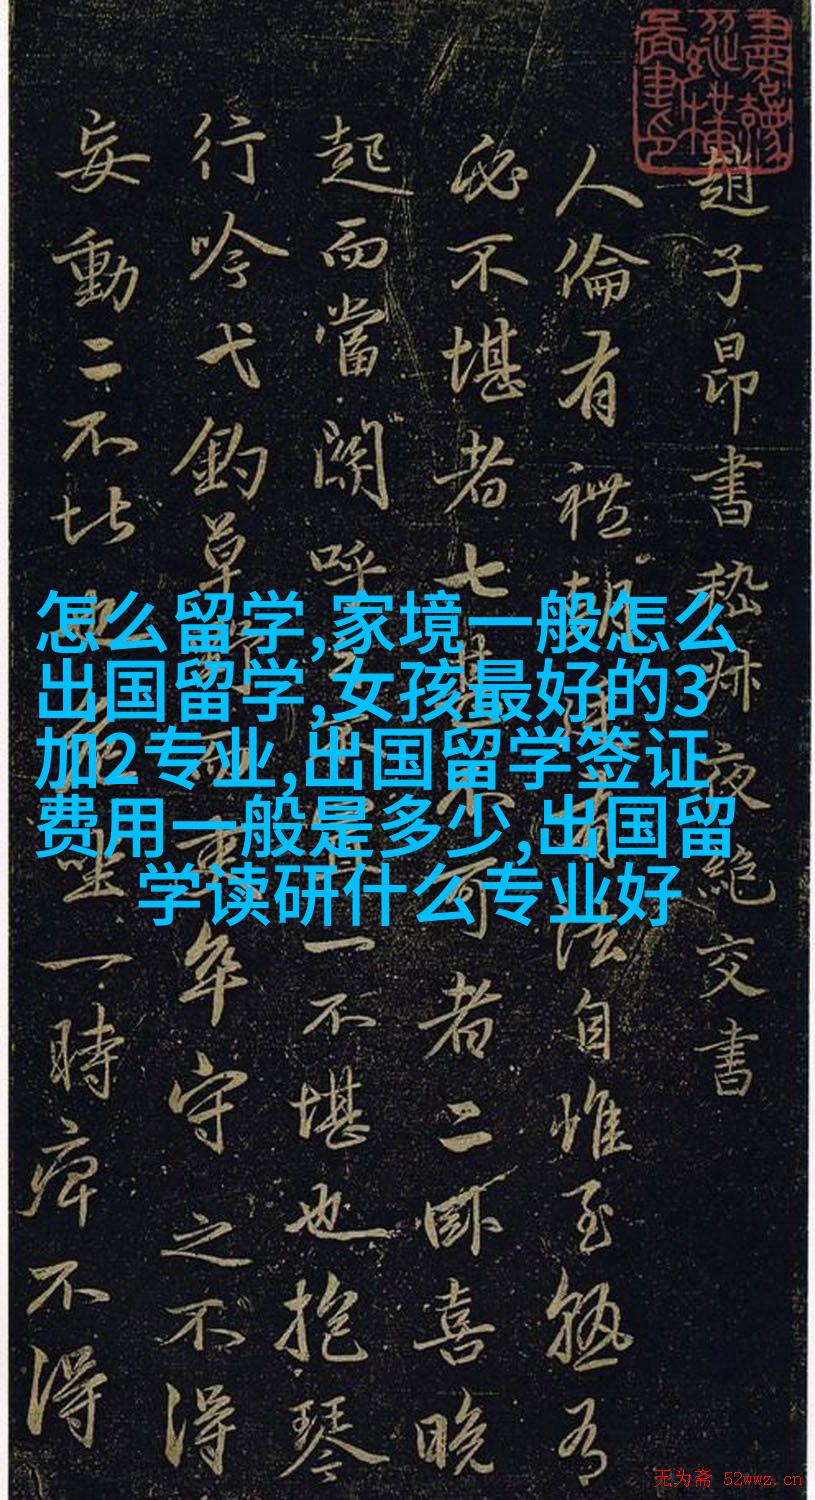 趙子昂書嵇叔夜絕交書
人倫有禮朝廷有法自惟至熟有
必不堪者七甚不可者二卧喜晚
起而當關呼之不置一不堪也抱琴
行吟弋釣草野而吏卒守之不得
妄動二不堪也危坐一時痺不得
怎么留学,家境一般怎么
出国留学,女孩最好的3
加2专业,出国留学签证
费用一般是多少,出国留
学读研什么专业好
无为斋 52wwz.cn